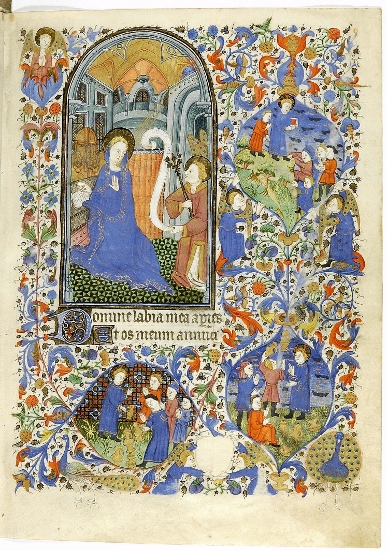 Domine labia mea apies
Et os meum annuci